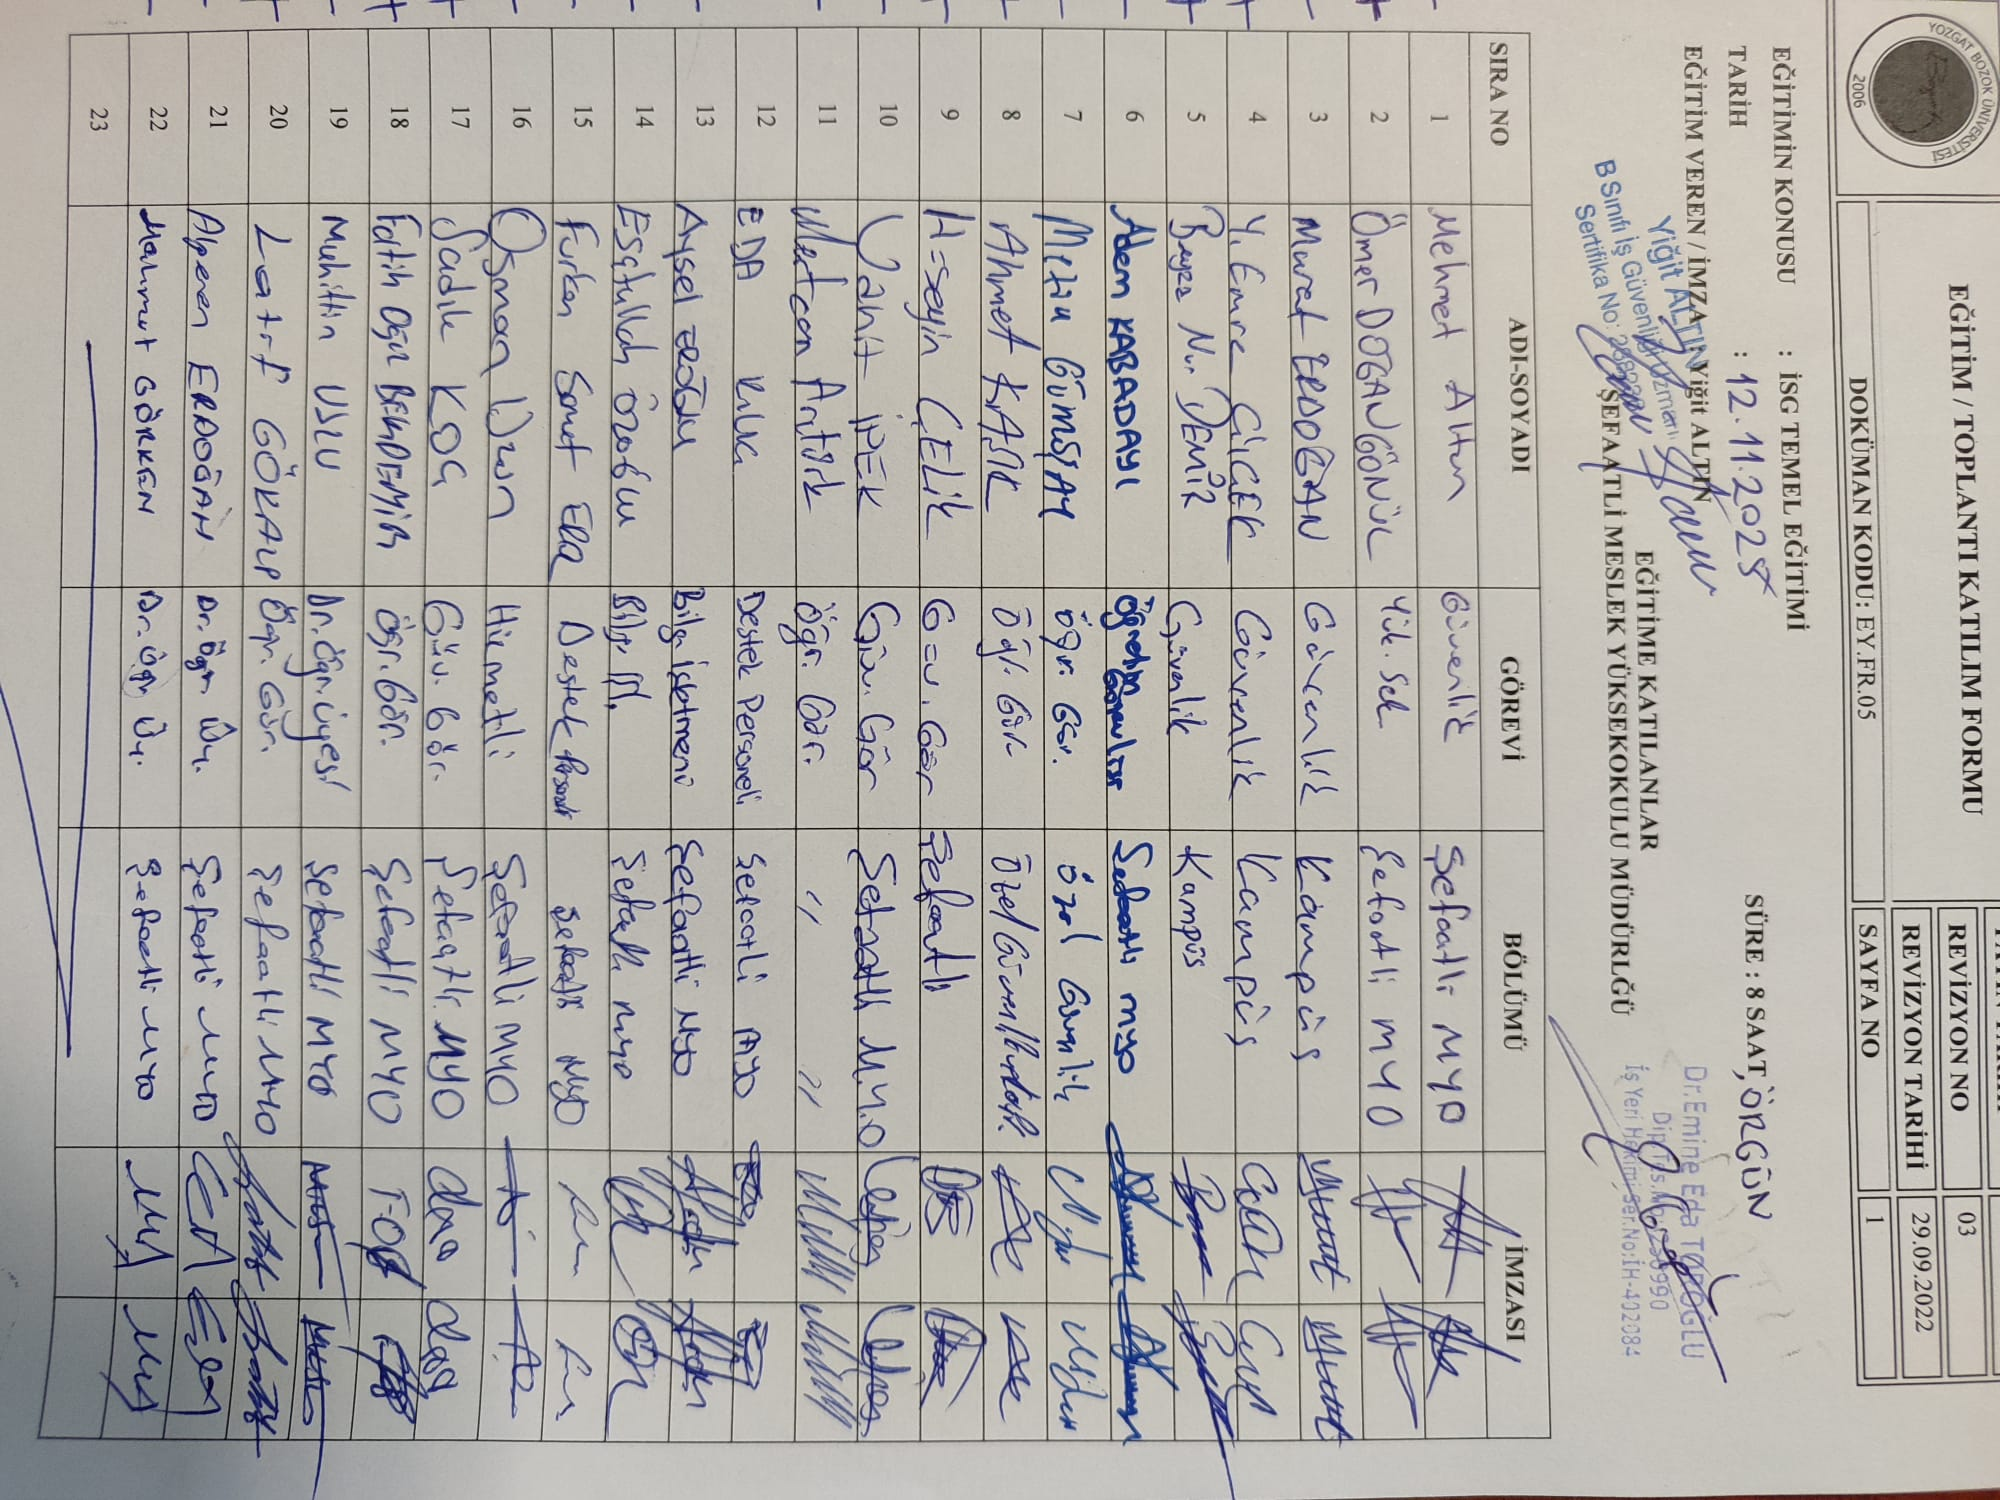 YOZGAT BOZOK ÜNİVERSİTESİ
2006
EĞİTİM / TOPLANTI KATILIM FORMU
DOKÜMAN KODU: EY.FR.05
REVİZYON NO 03
REVİZYON TARİHİ 29.09.2022
SAYFA NO 1
EĞİTİMİN KONUSU : İSG TEMEL EĞİTİMİ
TARİH : 12.11.2025 SÜRE : 8 SAAT, ÖRGÜN
EĞİTİM VEREN / İMZA : Yiğit ALTIN
Yiğit ALTIN
B Sınıfı İş Güvenliği Uzmanı
Sertifika No:
Dr.Emine Eda
Dip.Tes.No:
İş Yeri Hekimi Ser.No:İH-402084
EĞİTİME KATILANLAR
ŞEFAATLİ MESLEK YÜKSEKOKULU MÜDÜRLĞÜ
SIRA NO ADI-SOYADI GÖREVİ BÖLÜMÜ İMZASI
1 Mehmet Altun Güvenlik Şefaatli MYO
2 Ömer DOĞAN GÖNÜL Yük. Sek Şefaatli MYO
3 Murat ERDOGAN Güvenlik Kampüs
4 Y. Emre ÇİÇEK Güvenlik Kampüs
5 Beyza Nur DEMİR Güvenlik Kampüs
6 Adem KABADAYI Öğretim Görevlisi Şefaatli myo
7 Metin GÜMÜŞAY Öğr. Gör. Özel Güvenlik
8 Ahmet KAŞIK Öğr. Gör.
9 Hüseyin ÇELİK Güv. Gör Şefaatli
10 Vahit İPEK Güv. Gör Şefaatli M.Y.O
11 Metcan Arıtürk Öğr. Gör. " "
12 EDA KILIÇ Destek Personeli Şefaatli MYO
13 Aysel EROĞLU Bilg. İşletmeni Şefaatli Myo
14 Esatullah Şefaatli myo
15 Furkan Samet Destek Personeli Şefaatli Myo
16 Osman Uzun Hizmetli Şefaatli MYO
17 Sadık KOÇ Güv. Gör. Şefaatli MYO
18 Fatih Oğuz BEKDEMİR Öğr. Gör. Şefaatli MYO
19 Muhittin USLU Dr. Öğr. üyesi Şefaatli MYO
20 Latif GÖKALP Öğr. Gör. Şefaatli MYO
21 Alperen ERDOĞAN Dr. Öğr. Üy. Şefaatli MYO
22 Mahmut GÖRKEN Dr. Öğr. Üy. Şefaatli MYO
23